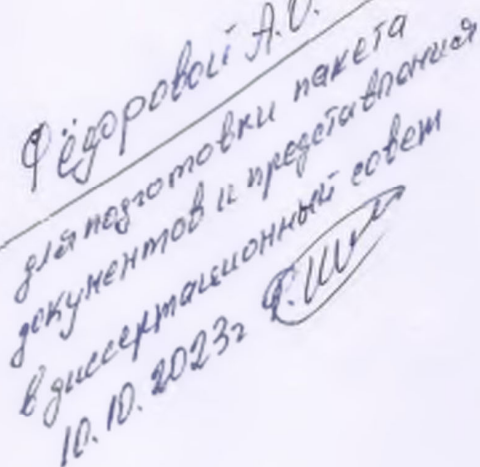 Фёдоровой А.О.
для подготовки пакета
документов и представления
в диссертационный совет
10.10.2023г